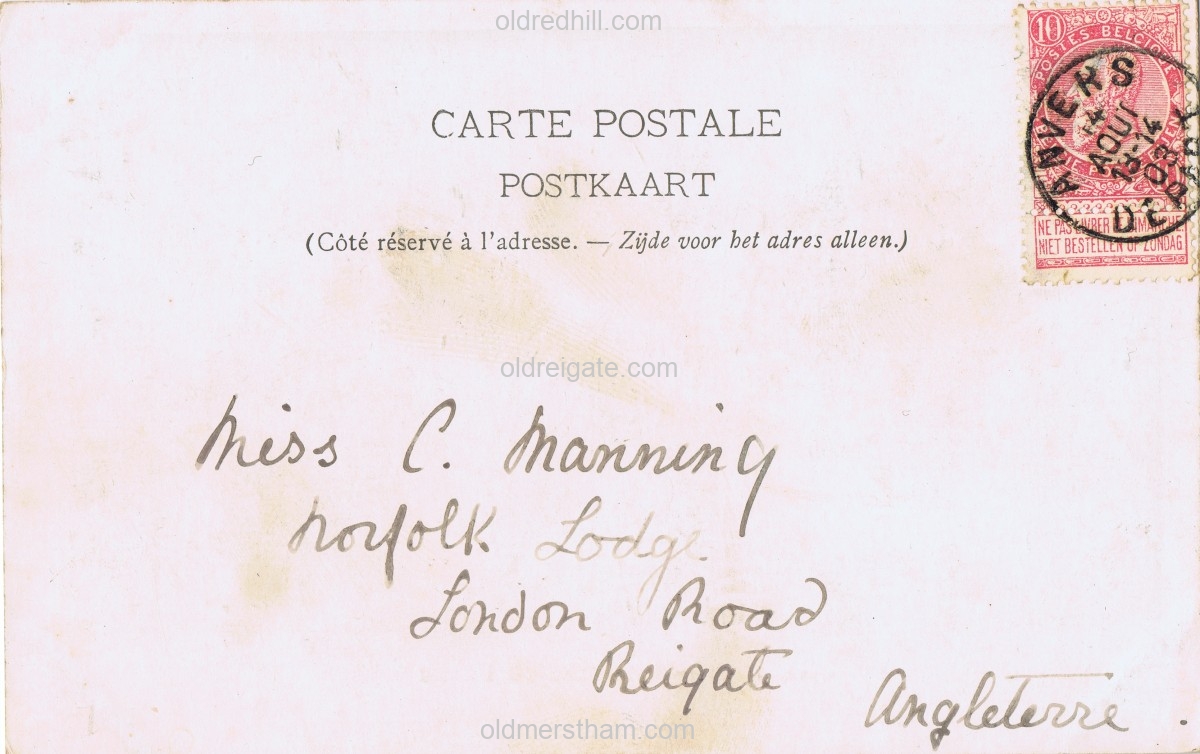 oldredhill.com
10
POSTES · BELGIQUE
ANVERS
4
AOUT
13-14
03
DEPART
CARTE POSTALE
POSTKAART
(Côté réservé à l'adresse. — Zijde voor het adres alleen.)
NE PAS LIVRER LE DIMANCHE
NIET BESTELLEN OP ZONDAG
oldreigate.com
Miss C. Manning
Norfolk Lodge
London Road
Reigate
Angleterre.
oldmerstham.com